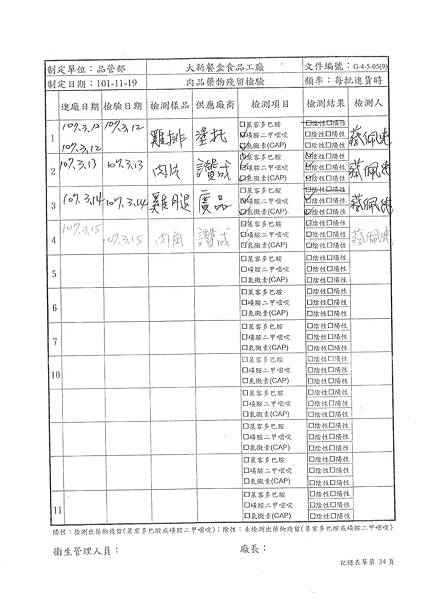 制定單位：品管部 大新餐盒食品工廠 文件編號：G-4-5-05(9)
制定日期：101-11-19 肉品藥物殘留檢驗 頻率：每批進貨時
進廠日期 檢驗日期 檢測樣品 供應廠商 檢測項目 檢測結果 檢測人
1 107.3.12 107.3.12 雞排 □萊客多巴胺 □陰性□陽性
107.3.12 □磺胺二甲嘧啶 □陰性□陽性
□氯黴素(CAP) □陰性□陽性
2 107.3.13 107.3.13 肉片 讚成 □萊客多巴胺 □陰性□陽性
□磺胺二甲嘧啶 □陰性□陽性
□氯黴素(CAP) □陰性□陽性
3 107.3.14 107.3.14 雞腿 □萊客多巴胺 □陰性□陽性
□磺胺二甲嘧啶 □陰性□陽性
□氯黴素(CAP) □陰性□陽性
4 107.3.15 107.3.15 肉角 讚成 □萊客多巴胺 □陰性□陽性
□磺胺二甲嘧啶 □陰性□陽性
□氯黴素(CAP) □陰性□陽性
5 □萊客多巴胺 □陰性□陽性
□磺胺二甲嘧啶 □陰性□陽性
□氯黴素(CAP) □陰性□陽性
6 □萊客多巴胺 □陰性□陽性
□磺胺二甲嘧啶 □陰性□陽性
□氯黴素(CAP) □陰性□陽性
7 □萊客多巴胺 □陰性□陽性
□磺胺二甲嘧啶 □陰性□陽性
□氯黴素(CAP) □陰性□陽性
10 □萊客多巴胺 □陰性□陽性
□磺胺二甲嘧啶 □陰性□陽性
□氯黴素(CAP) □陰性□陽性
□萊客多巴胺 □陰性□陽性
□磺胺二甲嘧啶 □陰性□陽性
□氯黴素(CAP) □陰性□陽性
□萊客多巴胺 □陰性□陽性
□磺胺二甲嘧啶 □陰性□陽性
□氯黴素(CAP) □陰性□陽性
□萊客多巴胺 □陰性□陽性
□磺胺二甲嘧啶 □陰性□陽性
11 □氯黴素(CAP) □陰性□陽性
陽性：檢測出藥物殘留(萊客多巴胺或磺胺二甲嘧啶)；陰性：未檢測出藥物殘留(萊客多巴胺或磺胺二甲嘧啶)
衛生管理人員： 廠長：
記錄表單第 34 頁